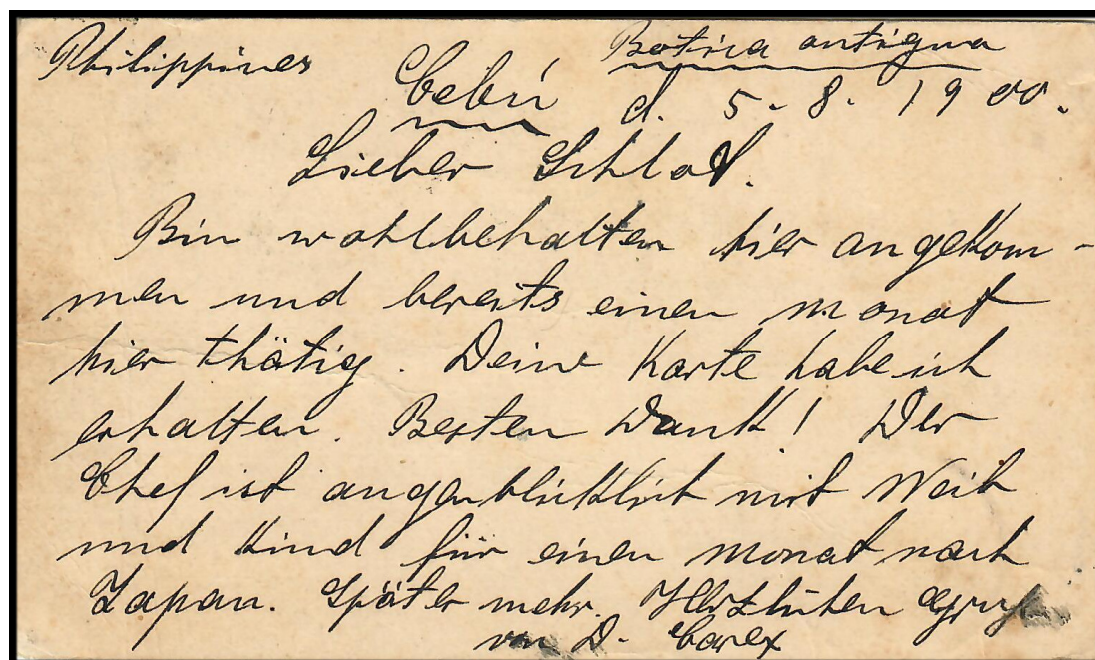 Philippines Botica antigua
Cebú d. 5. 8. 1900.
Lieber Schlot.
Bin wohlbehalten hier angekom-
men und bereits einen Monat
hier thätig. Deine Karte habe ich
erhalten. Besten Dank! Der
Chef ist augenblicklich mit Weib
und Kind für einen Monat nach
Japan. Später mehr. Herzlichen Gruß
von D.